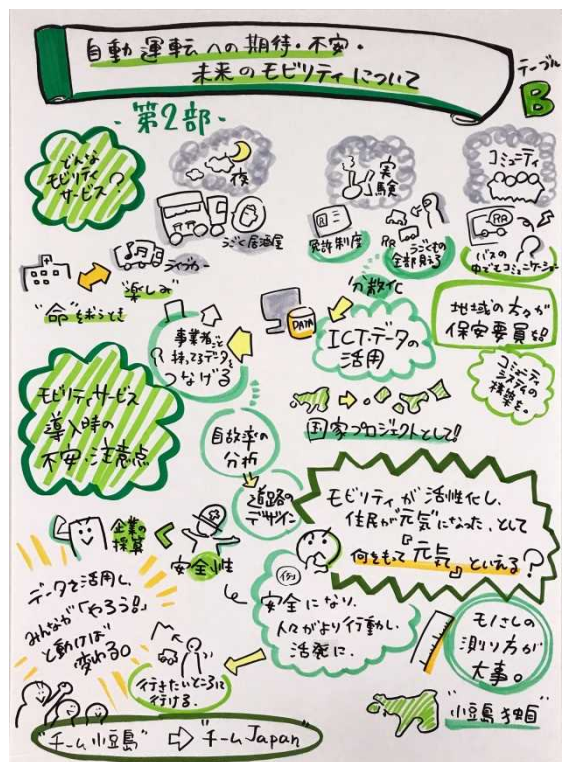 自動運転への期待・不安・
未来のモビリティについて
テーブル
B
・第2部・
どんな
モビリティ
サービス？
夜
うごく居酒屋
ライブカー
"楽しみ"
"命"を求うとき
実験
免許制度
R
RR
うごくもの
全部見える
コミュニティ
RR
バスの
中でもコミュニケーション
分散化
DATA
ICT・データの
活用
地域の方々が
保安要員を!!
コミュニティ
システムの
構築を。
事業者ごと
持ってるデータを
つなげる
国家プロジェクトとして!!
モビリティサービス
導入時の
不安・注意点
自故率の
分析
道路の
デザイン
企業の
採算
安全性
モビリティが活性化し、
住民が"元気"になった、として
何をもって『元気』といえる？
データを活用し、
みんなが「やろう!!」
と動けば
変わる。
安全になり、
人々がより行動し、
活発に。
行きたいところに
行ける。
モノさしの
測り方が
大事。
"小豆島独自"
"チーム小豆島" ⇨ "チームJapan"